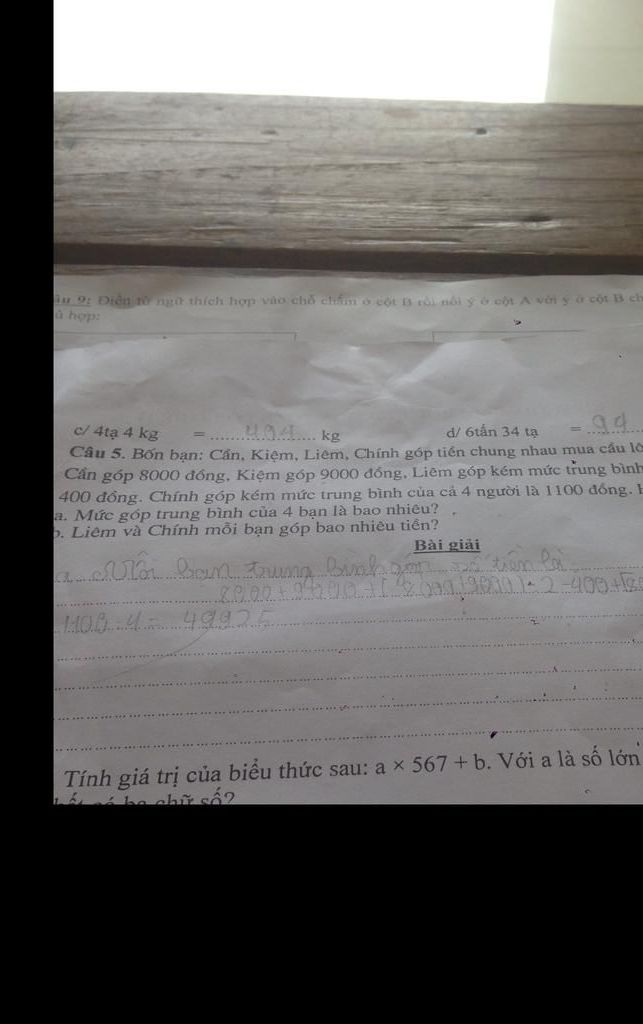 Câu 9: Điền từ ngữ thích hợp vào chỗ chấm ở cột B rồi nối ý ở cột A với ý ở cột B
hợp:
c/ 4tạ 4 kg = ........ kg
d/ 6tấn 34 tạ = 94
Câu 5. Bốn bạn: Cần, Kiệm, Liêm, Chính góp tiền chung nhau mua cầu
Cần góp 8000 đồng, Kiệm góp 9000 đồng, Liêm góp kém mức trung bình
400 đồng. Chính góp kém mức trung bình của cả 4 người là 1100 đồng.
a. Mức góp trung bình của 4 bạn là bao nhiêu?
b. Liêm và Chính mỗi bạn góp bao nhiêu tiền?
Bài giải
a, Mỗi bạn trung bình góp số tiền là
1100 : 4 = 49925
Tính giá trị của biểu thức sau: a × 567 + b. Với a là số lớn
có ba chữ số?